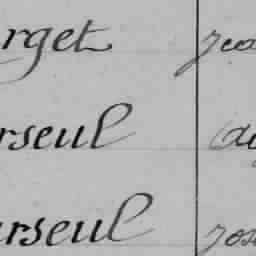 rget Jea
rseul
urseul Jos